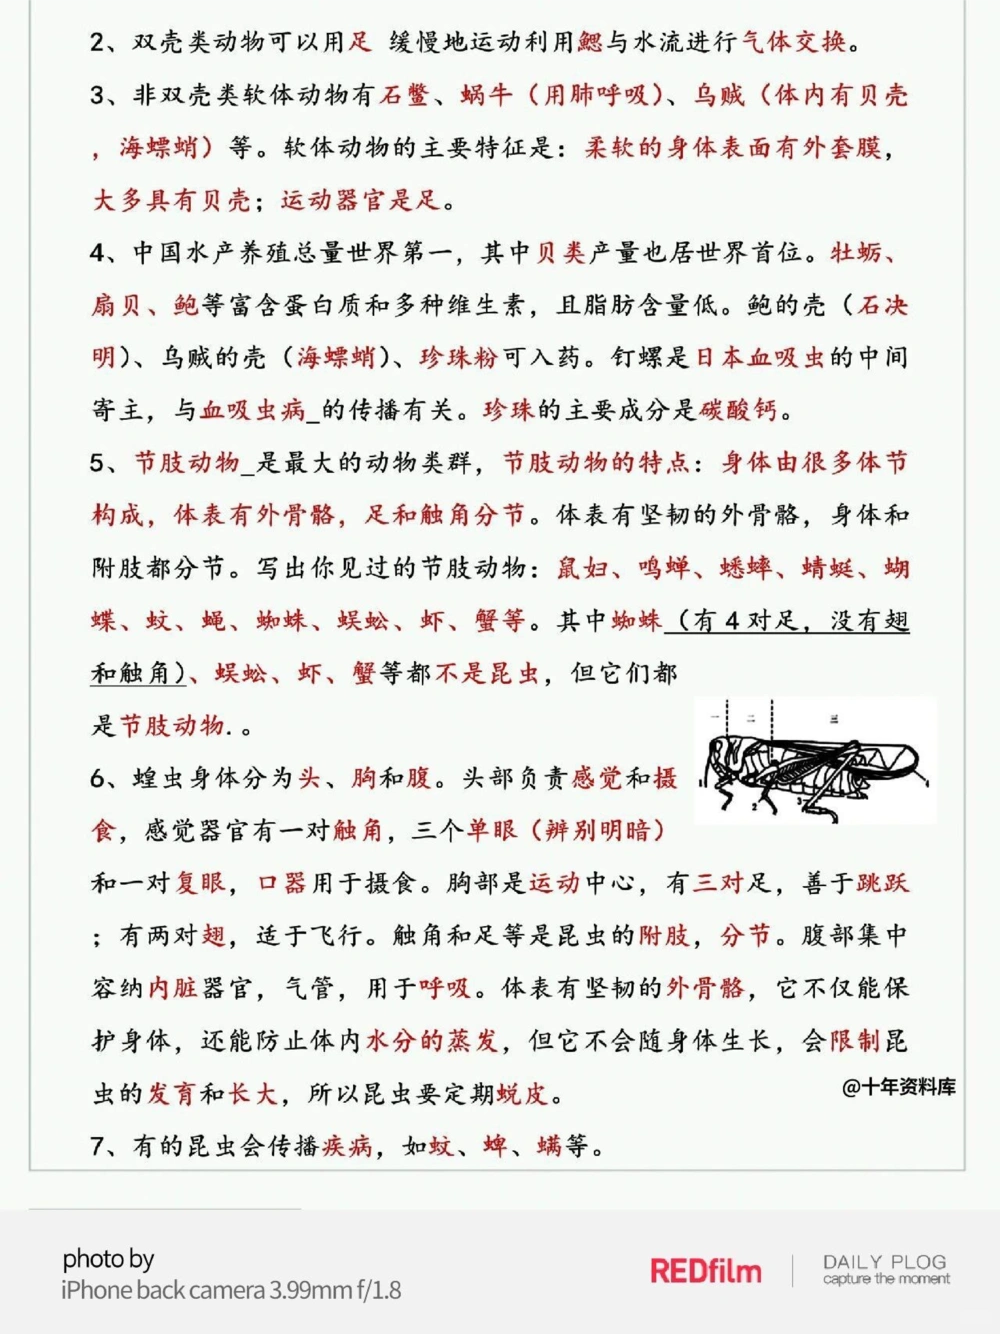 2、双壳类动物可以用足 缓慢地运动利用鳃与水流进行气体交换。
3、非双壳类软体动物有石鳖、蜗牛（用肺呼吸）、乌贼（体内有贝壳
，海螵蛸）等。软体动物的主要特征是：柔软的身体表面有外套膜，
大多具有贝壳；运动器官是足。
4、中国水产养殖总量世界第一，其中贝类产量也居世界首位。牡蛎、
扇贝、鲍等富含蛋白质和多种维生素，且脂肪含量低。鲍的壳（石决
明）、乌贼的壳（海螵蛸）、珍珠粉可入药。钉螺是日本血吸虫的中间
寄主，与血吸虫病_的传播有关。珍珠的主要成分是碳酸钙。
5、节肢动物_是最大的动物类群，节肢动物的特点：身体由很多体节
构成，体表有外骨骼，足和触角分节。体表有坚韧的外骨骼，身体和
附肢都分节。写出你见过的节肢动物：鼠妇、鸣蝉、蟋蟀、蜻蜓、蝴
蝶、蚊、蝇、蜘蛛、蜈蚣、虾、蟹等。其中蜘蛛（有4对足，没有翅
和触角）、蜈蚣、虾、蟹等都不是昆虫，但它们都
是节肢动物.。
一 二 三
1 2 3
6、蝗虫身体分为头、胸和腹。头部负责感觉和摄
食，感觉器官有一对触角，三个单眼（辨别明暗）
和一对复眼，口器用于摄食。胸部是运动中心，有三对足，善于跳跃
；有两对翅，适于飞行。触角和足等是昆虫的附肢，分节。腹部集中
容纳内脏器官，气管，用于呼吸。体表有坚韧的外骨骼，它不仅能保
护身体，还能防止体内水分的蒸发，但它不会随身体生长，会限制昆
虫的发育和长大，所以昆虫要定期蜕皮。
@十年资料库
7、有的昆虫会传播疾病，如蚊、蜱、螨等。
photo by
iPhone back camera 3.99mm f/1.8
REDfilm
DAILY PLOG
capture the moment